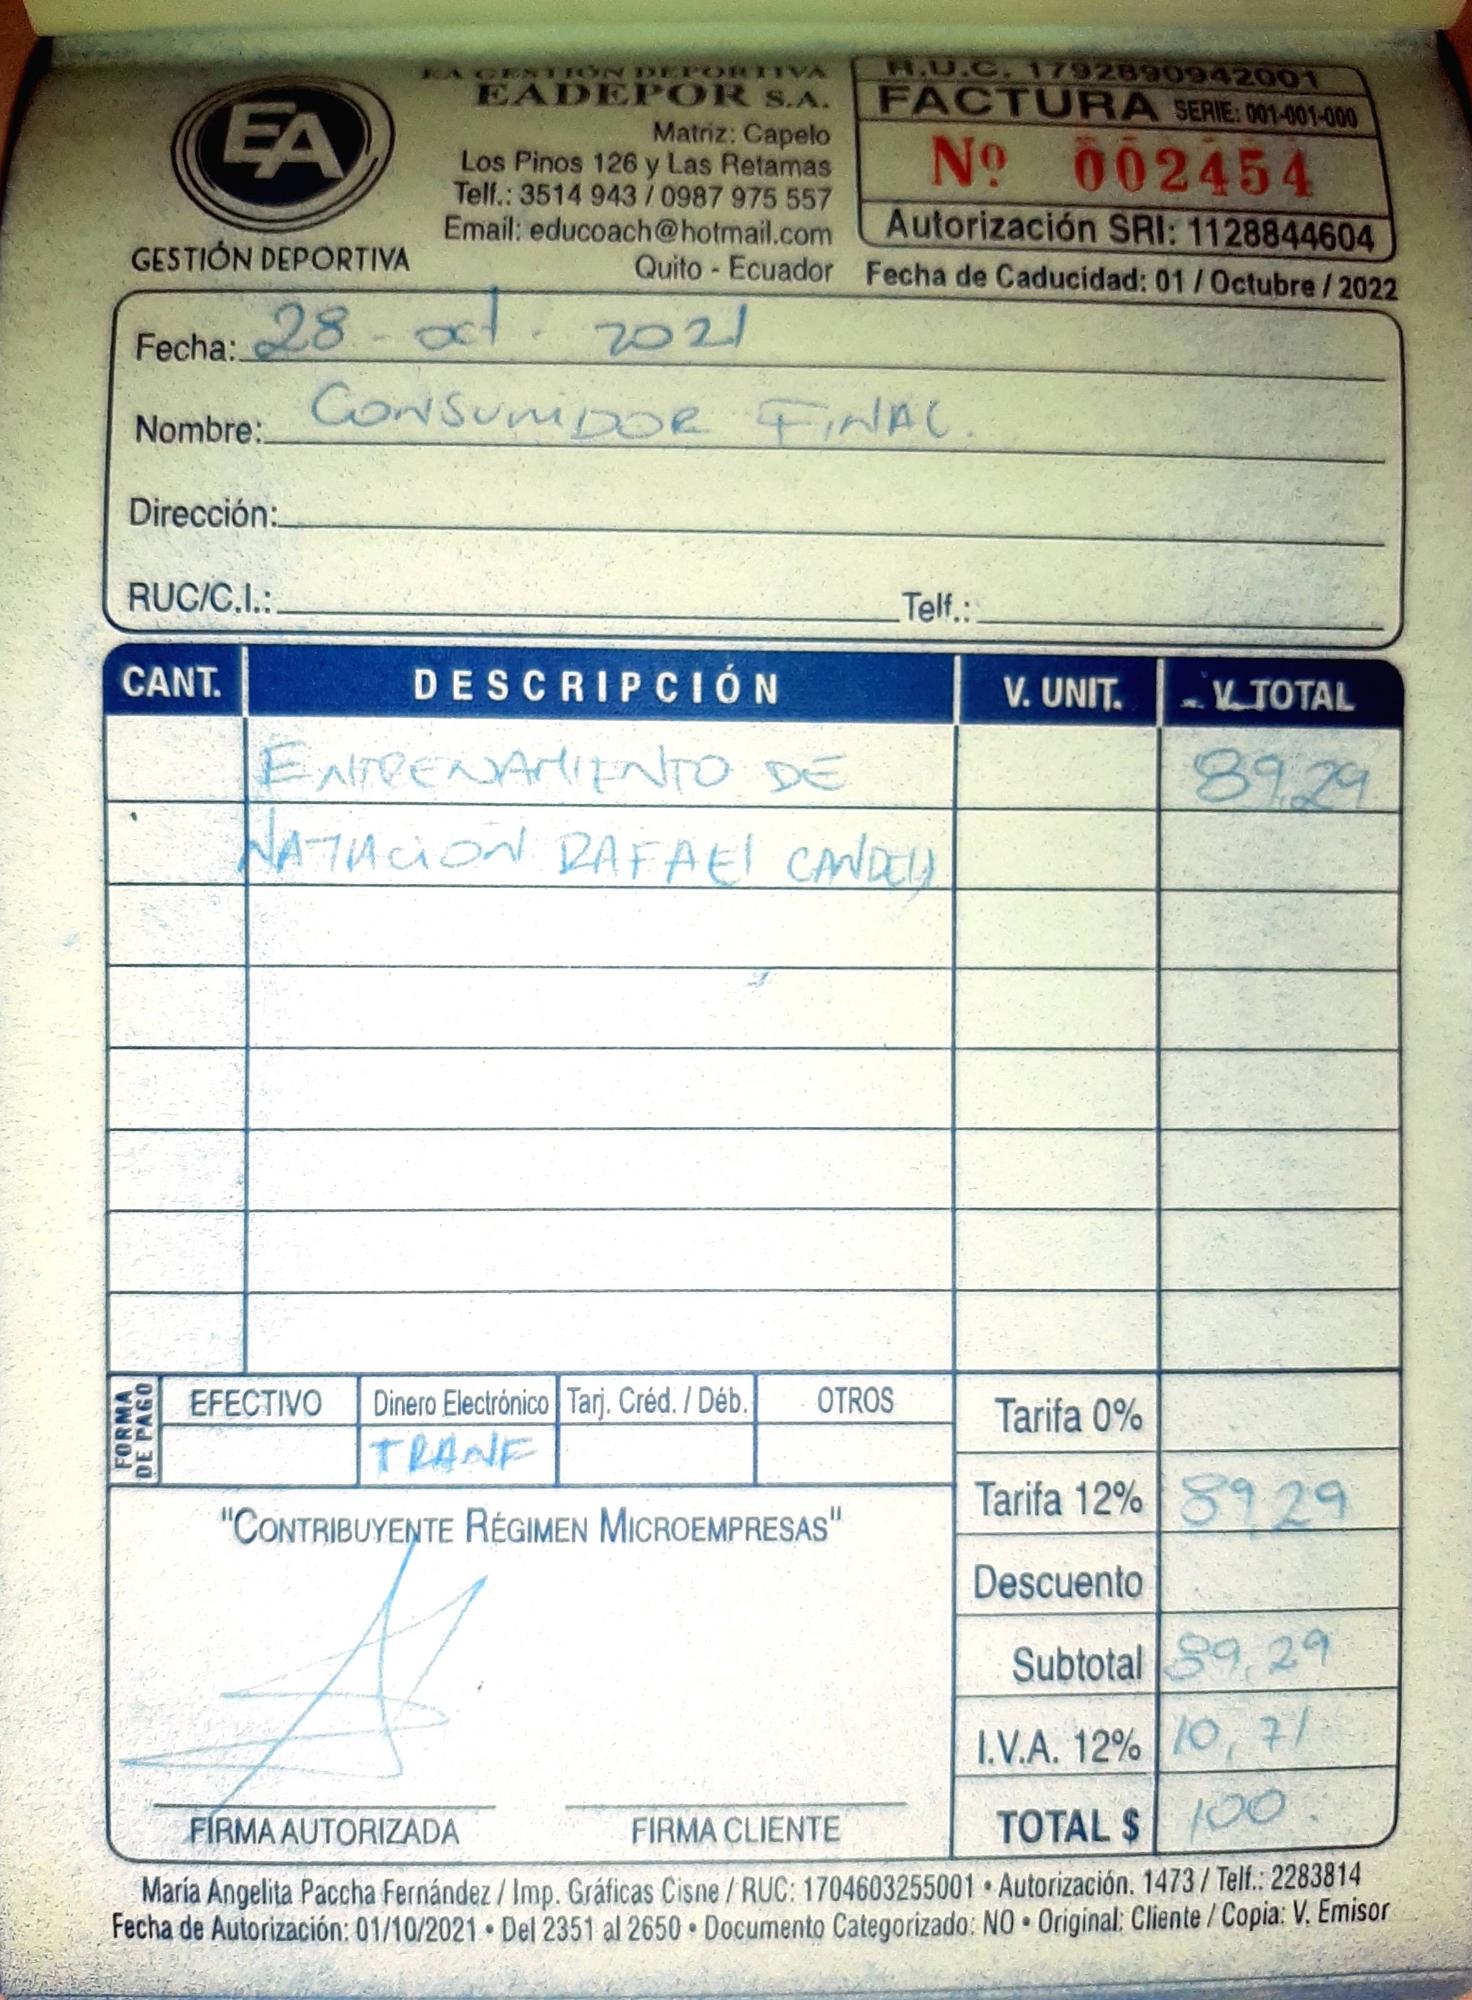 EA
GESTIÓN DEPORTIVA
EA GESTIÓN DEPORTIVA
EADEPOR S.A.
Matriz: Capelo
Los Pinos 126 y Las Retamas
Telf.: 3514 943 / 0987 975 557
Email: educoach@hotmail.com
Quito - Ecuador
R.U.C. 1792890942001
FACTURA SERIE: 001-001-000
Nº 002454
Autorización SRI: 1128844604
Fecha de Caducidad: 01 / Octubre / 2022
Fecha: 28 - oct - 2021
Nombre: CONSUMIDOR FINAL.
Dirección:
RUC/C.I.: Telf.:
CANT. DESCRIPCIÓN V. UNIT. V. TOTAL
ENTRENAMIENTO DE 89,29
NATACION RAFAEL
FORMA DE PAGO
EFECTIVO Dinero Electrónico Tarj. Créd. / Déb. OTROS
TRANF
Tarifa 0%
Tarifa 12% 89,29
Descuento
Subtotal 89,29
I.V.A. 12% 10,71
TOTAL $ 100.
"CONTRIBUYENTE RÉGIMEN MICROEMPRESAS"
FIRMA AUTORIZADA FIRMA CLIENTE
María Angelita Paccha Fernández / Imp. Gráficas Cisne / RUC: 1704603255001 • Autorización. 1473 / Telf.: 2283814
Fecha de Autorización: 01/10/2021 • Del 2351 al 2650 • Documento Categorizado: NO • Original: Cliente / Copia: V. Emisor